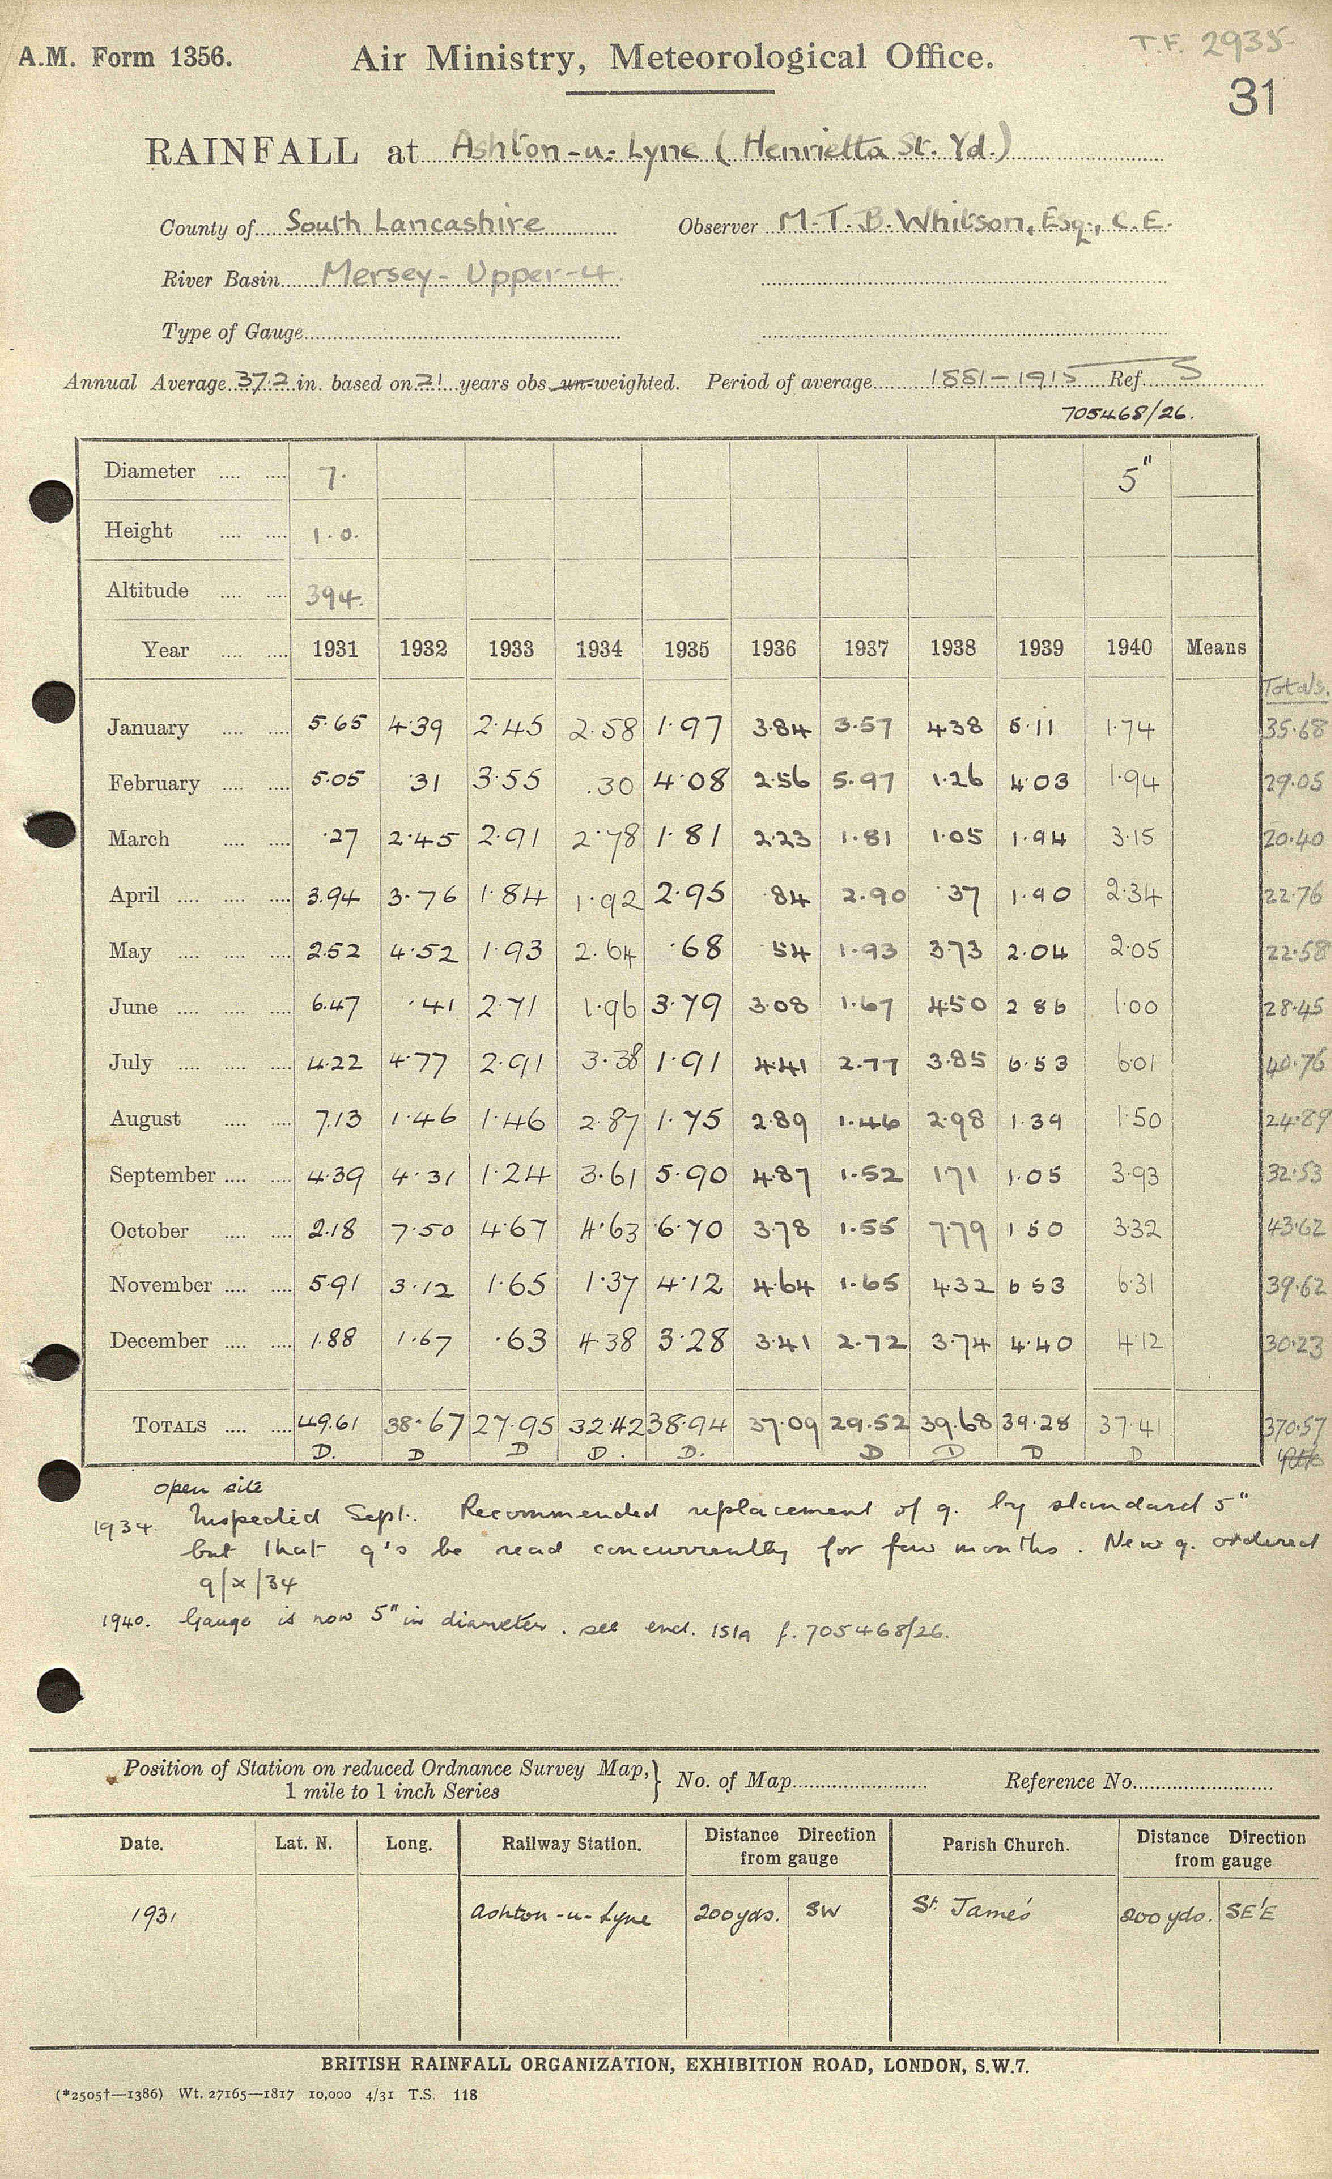 T.F. 2935.
A.M. Form 1356. Air Ministry, Meteorological Office.
31
RAINFALL at Ashton-u-Lyne (Henrietta St. Yd.)
County of South Lancashire Observer M.T.B. Whitson, Esq., C.E.
River Basin Mersey - Upper-4.
Type of Gauge
Annual Average 37.2 in. based on 21 years obs un-weighted. Period of average 1881-1915 Ref. S
705468/26.
Diameter 7. 5"
Height 1.0.
Altitude 394.
Year 1931 1932 1933 1934 1935 1936 1937 1938 1939 1940 Means
Totals.
January 5.65 4.39 2.45 2.58 1.97 3.84 3.57 4.38 5.11 1.74 35.68
February 5.05 .31 3.55 .30 4.08 2.56 5.97 1.26 4.03 1.94 29.05
March .27 2.45 2.91 2.78 1.81 2.23 1.81 1.05 1.94 3.15 20.40
April 3.94 3.76 1.84 1.92 2.95 .84 2.90 .37 1.90 2.34 22.76
May 2.52 4.52 1.93 2.64 .68 .54 1.93 3.73 2.04 2.05 22.58
June 6.47 .41 2.71 1.96 3.79 3.08 1.67 4.50 2.86 1.00 28.45
July 4.22 4.77 2.91 3.38 1.91 4.41 2.77 3.85 6.53 6.01 40.76
August 7.13 1.46 1.46 2.87 1.75 2.89 1.46 2.98 1.39 1.50 24.89
September 4.39 4.31 1.24 3.61 5.90 4.87 1.52 1.71 1.05 3.93 32.53
October 2.18 7.50 4.67 4.63 6.70 3.78 1.55 7.79 1.50 3.32 43.62
November 5.91 3.12 1.65 1.37 4.12 4.64 1.65 4.32 6.53 6.31 39.62
December 1.88 1.67 .63 4.38 3.28 3.41 2.72 3.74 4.40 4.12 30.23
TOTALS 49.61 38.67 27.95 32.42 38.94 37.09 29.52 39.68 39.28 37.41 370.57
D. D D D. D. D D D D
open site
1934 Inspected Sept. Recommended replacement of g. by standard 5"
but that g's be read concurrently for few months. New g. ordered
9/x/34
1940. Gauge is now 5" in diameter. see encl. 151A f. 705468/26.
Position of Station on reduced Ordnance Survey Map, 1 mile to 1 inch Series } No. of Map Reference No.
Date. Lat. N. Long. Railway Station. Distance Direction from gauge Parish Church. Distance Direction from gauge
1931 Ashton-u-Lyne 200yds. SW St. James' 200 yds. SE'E
BRITISH RAINFALL ORGANIZATION, EXHIBITION ROAD, LONDON, S.W.7.
(*2505†—1386) Wt. 27165—1817 10,000 4/31 T.S. 118